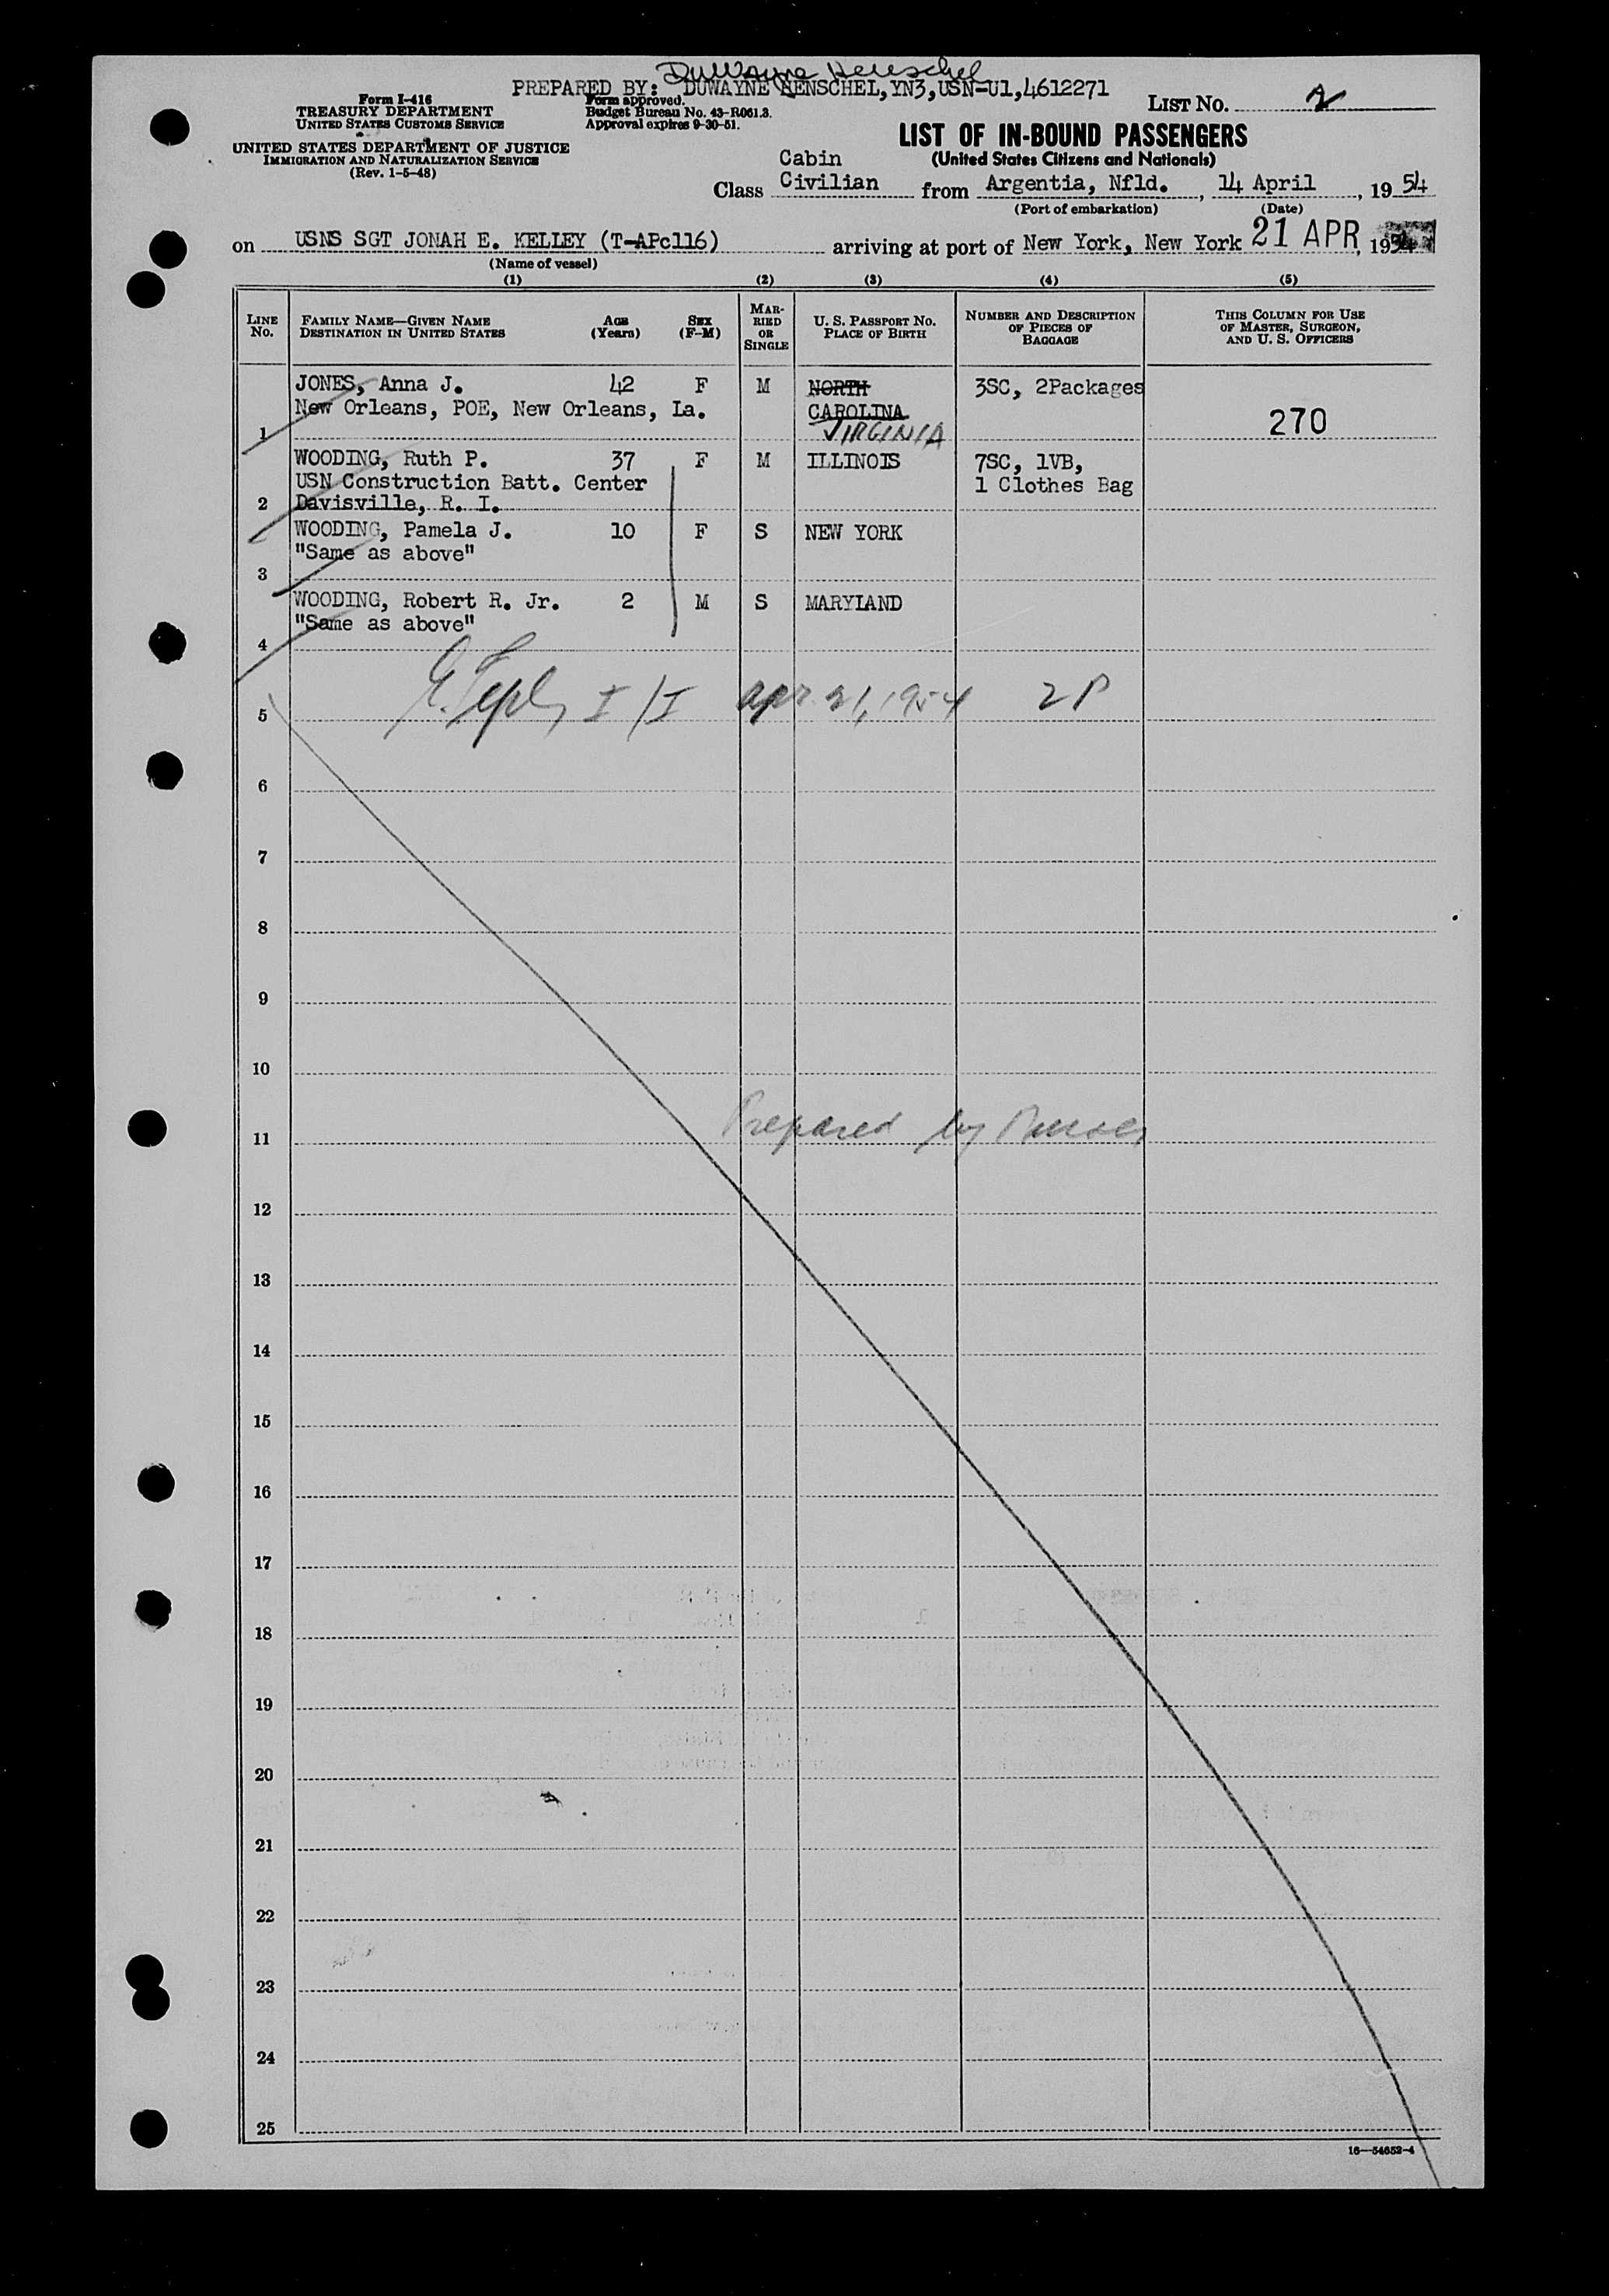 DuWayne Henschel
PREPARED BY: DUWAYNE HENSCHEL, YN3, USN-U1, 4612271
Form I-416
TREASURY DEPARTMENT
UNITED STATES CUSTOMS SERVICE
UNITED STATES DEPARTMENT OF JUSTICE
IMMIGRATION AND NATURALIZATION SERVICE
(Rev. 1-5-48)
Form approved.
Budget Bureau No. 43-R061.3.
Approval expires 9-30-51.
LIST NO. 2
LIST OF IN-BOUND PASSENGERS
(United States Citizens and Nationals)
Cabin
Class Civilian from Argentia, Nfld., 14 April, 19 54
(Port of embarkation) (Date)
on USNS SGT JONAH E. KELLEY (T-APc116) arriving at port of New York, New York 21 APR, 1954
(Name of vessel)
(1) (2) (3) (4) (5)
LINE No. FAMILY NAME—GIVEN NAME DESTINATION IN UNITED STATES AGE (Years) SEX (F-M) MARRIED OR SINGLE U. S. PASSPORT NO. PLACE OF BIRTH NUMBER AND DESCRIPTION OF PIECES OF BAGGAGE THIS COLUMN FOR USE OF MASTER, SURGEON, AND U. S. OFFICERS
JONES, Anna J. 42 F M NORTH 3SC, 2Packages
New Orleans, POE, New Orleans, La. CAROLINA 270
1 VIRGINIA
WOODING, Ruth P. 37 F M ILLINOIS 7SC, 1VB,
USN Construction Batt. Center 1 Clothes Bag
2 Davisville, R. I.
WOODING, Pamela J. 10 F S NEW YORK
"Same as above"
3
WOODING, Robert R. Jr. 2 M S MARYLAND
"Same as above"
4
I/I apr. 21, 1954 2P
5
6
7
8
9
10
Prepared by
11
12
13
14
15
16
17
18
19
20
21
22
23
24
25
16—54652-4